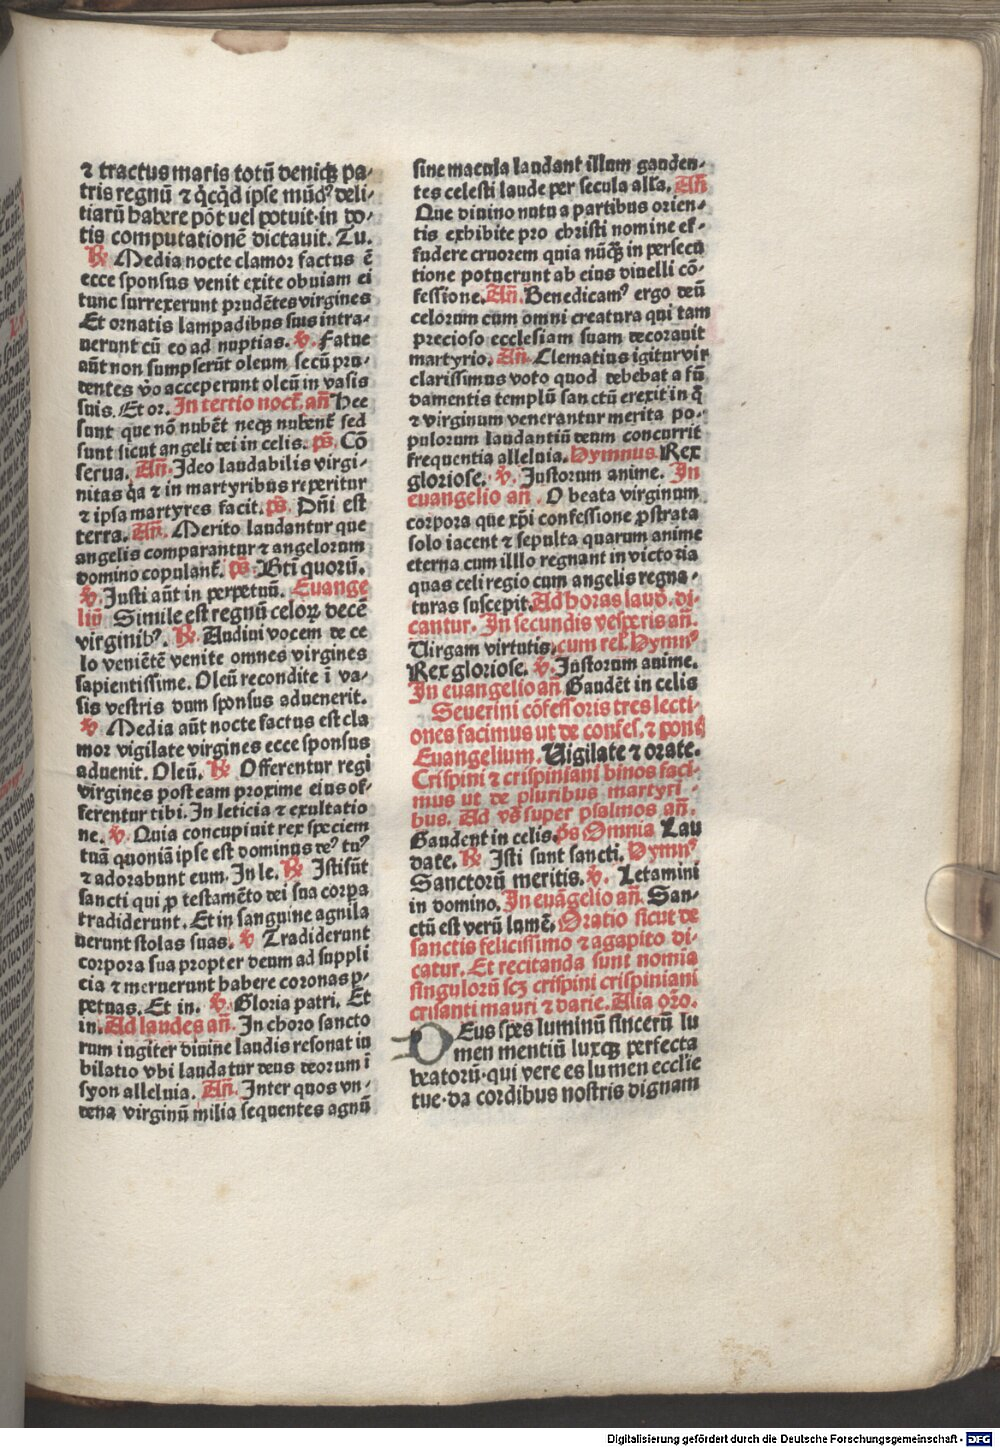 ⁊ tractus maris totū deniqꝫ pa⸗
tris regnū ⁊ q̇cq̇d ipse mūdꝰ deli⸗
tiarū habere pōt uel potuit·in do⸗
tis computationē dictauit. Tu.
℟ Media nocte clamor factus ē
ecce sponsus venit exite obuiam ei
tunc surrexerunt prudētes virgines
Et ornatis lampadibus suis intra⸗
uerunt cū eo ad nuptias. ℣. Fatue
aūt non sumpserūt oleum secū pru⸗
dentes v̄o acceperunt oleū in vasis
suis. Et or. In tertio noct̄. an̄ Hee
sunt que nō nubēt neqꝫ nubent̄ sed
sunt sicut angeli dei in celis. ps̄. Cō
serua. An̄. Ideo laudabilis virgi⸗
nitas q̇a ⁊ in martyribus reperitur
⁊ ipsa martyres facit. ps̄. Dn̄i est
terra. An̄. Merito laudantur que
angelis comparantur ⁊ angelorum
domino copulant̄. ps̄. Bt̄i quorū.
℣. Justi aūt in perpetuū. Euange
liū Simile est regnū celoꝝ decē
virginibꝰ. ℟. Audiui vocem de ce
lo veniētē venite omnes virgines
sapientissime. Oleū recondite ī va⸗
sis vestris dum sponsus aduenerit.
℣ Media aūt nocte factus est cla
mor vigilate virgines ecce sponsus
aduenit. Oleū. ℟ Offerentur regi
virgines post eam proxime eius of⸗
ferentur tibi. In leticia ⁊ exultatio
ne. ℣. Quia concupiuit rex speciem
tuā quoniā ipse est dominus deꝰ tuꝰ
⁊ adorabunt eum. In le. ℟ Isti sūt
sancti qui ꝓ testamēto dei sua corpa
tradiderunt. Et in sanguine agni la
uerunt stolas suas. ℣ Tradiderunt
corpora sua propter deum ad suppli
cia ⁊ meruerunt habere coronas ꝑ⸗
petuas. Et in. ℣. Gloria patri. Et
in. Ad laudes an̄. In choro sancto
rum iugiter diuine laudis resonat iu
bilatio vbi laudatur deus deorum ī
syon alleluia. An̄. Inter quos vn⸗
dena virginū milia sequentes agnū
sine macula laudant illum gauden⸗
tes celesti laude per secula all'a. An̄
Que diuino nutu a partibus orien⸗
tis exhibite pro christi nomine ef⸗
fudere cruorem quia nūqꝫ in persecu
tione potuerunt ab eius diuelli cō⸗
fessione. An̄. Benedicamꝰ ergo deū
celorum cum omni creatura qui tam
precioso ecclesiam suam decorauit
martyrio. An̄. Clematius igitur vir
clarissimus voto quod debebat a fū
damentis templū sanctū erexit in q̇
⁊ virginum venerantur merita po⸗
pulorum laudantiū deum concurrit
frequentia alleluia. Hymnus Rex
gloriose. ℣. Justorum anime. In
euangelio an̄. O beata virginum
corpora que xp̄i confessione ꝓstrata
solo iacent ⁊ sepulta quarum anime
eterna cum illlo regnant in victoria
quas celi regio cum angelis regna⸗
turas suscepit. Ad horas laud. di⸗
cantur. In secundis vesperis an̄.
Virgam virtutis. cum rel. Hymnꝰ
Rex gloriose. ℣. Justorum anime.
In euangelio an̄ Gaudēt in celis
Seuerini cōfessoris tres lecti⸗
ones facimus ut de confes. ⁊ pont̄
Euangelium. Vigilate ⁊ orate.
Crispini ⁊ crispiniani binos faci⸗
mus ut de pluribus martyri⸗
bus. Ad vs̄ super psalmos an̄.
Gaudent in celis. ps̄ Omnia Lau
date. ℟ Isti sunt sancti. Hymnꝰ
Sanctorū meritis. ℣. Letamini
in domino. In euāgelio an̄. San⸗
ctū est verū lumē. Oratio sicut de
sanctis felicissimo ⁊ agapito di⸗
catur. Et recitanda sunt nomia
singulorū scꝫ crispini crispiniani
crisanti mauri ⁊ darie. Alia oro̅.
DEus spes luminū sincerū lu
men mentiū luxqꝫ perfecta
beatorū·qui vere es lumen ecclie
tue·da cordibus nostris dignam
Digitalisierung gefördert durch die Deutsche Forschungsgemeinschaft - DFG